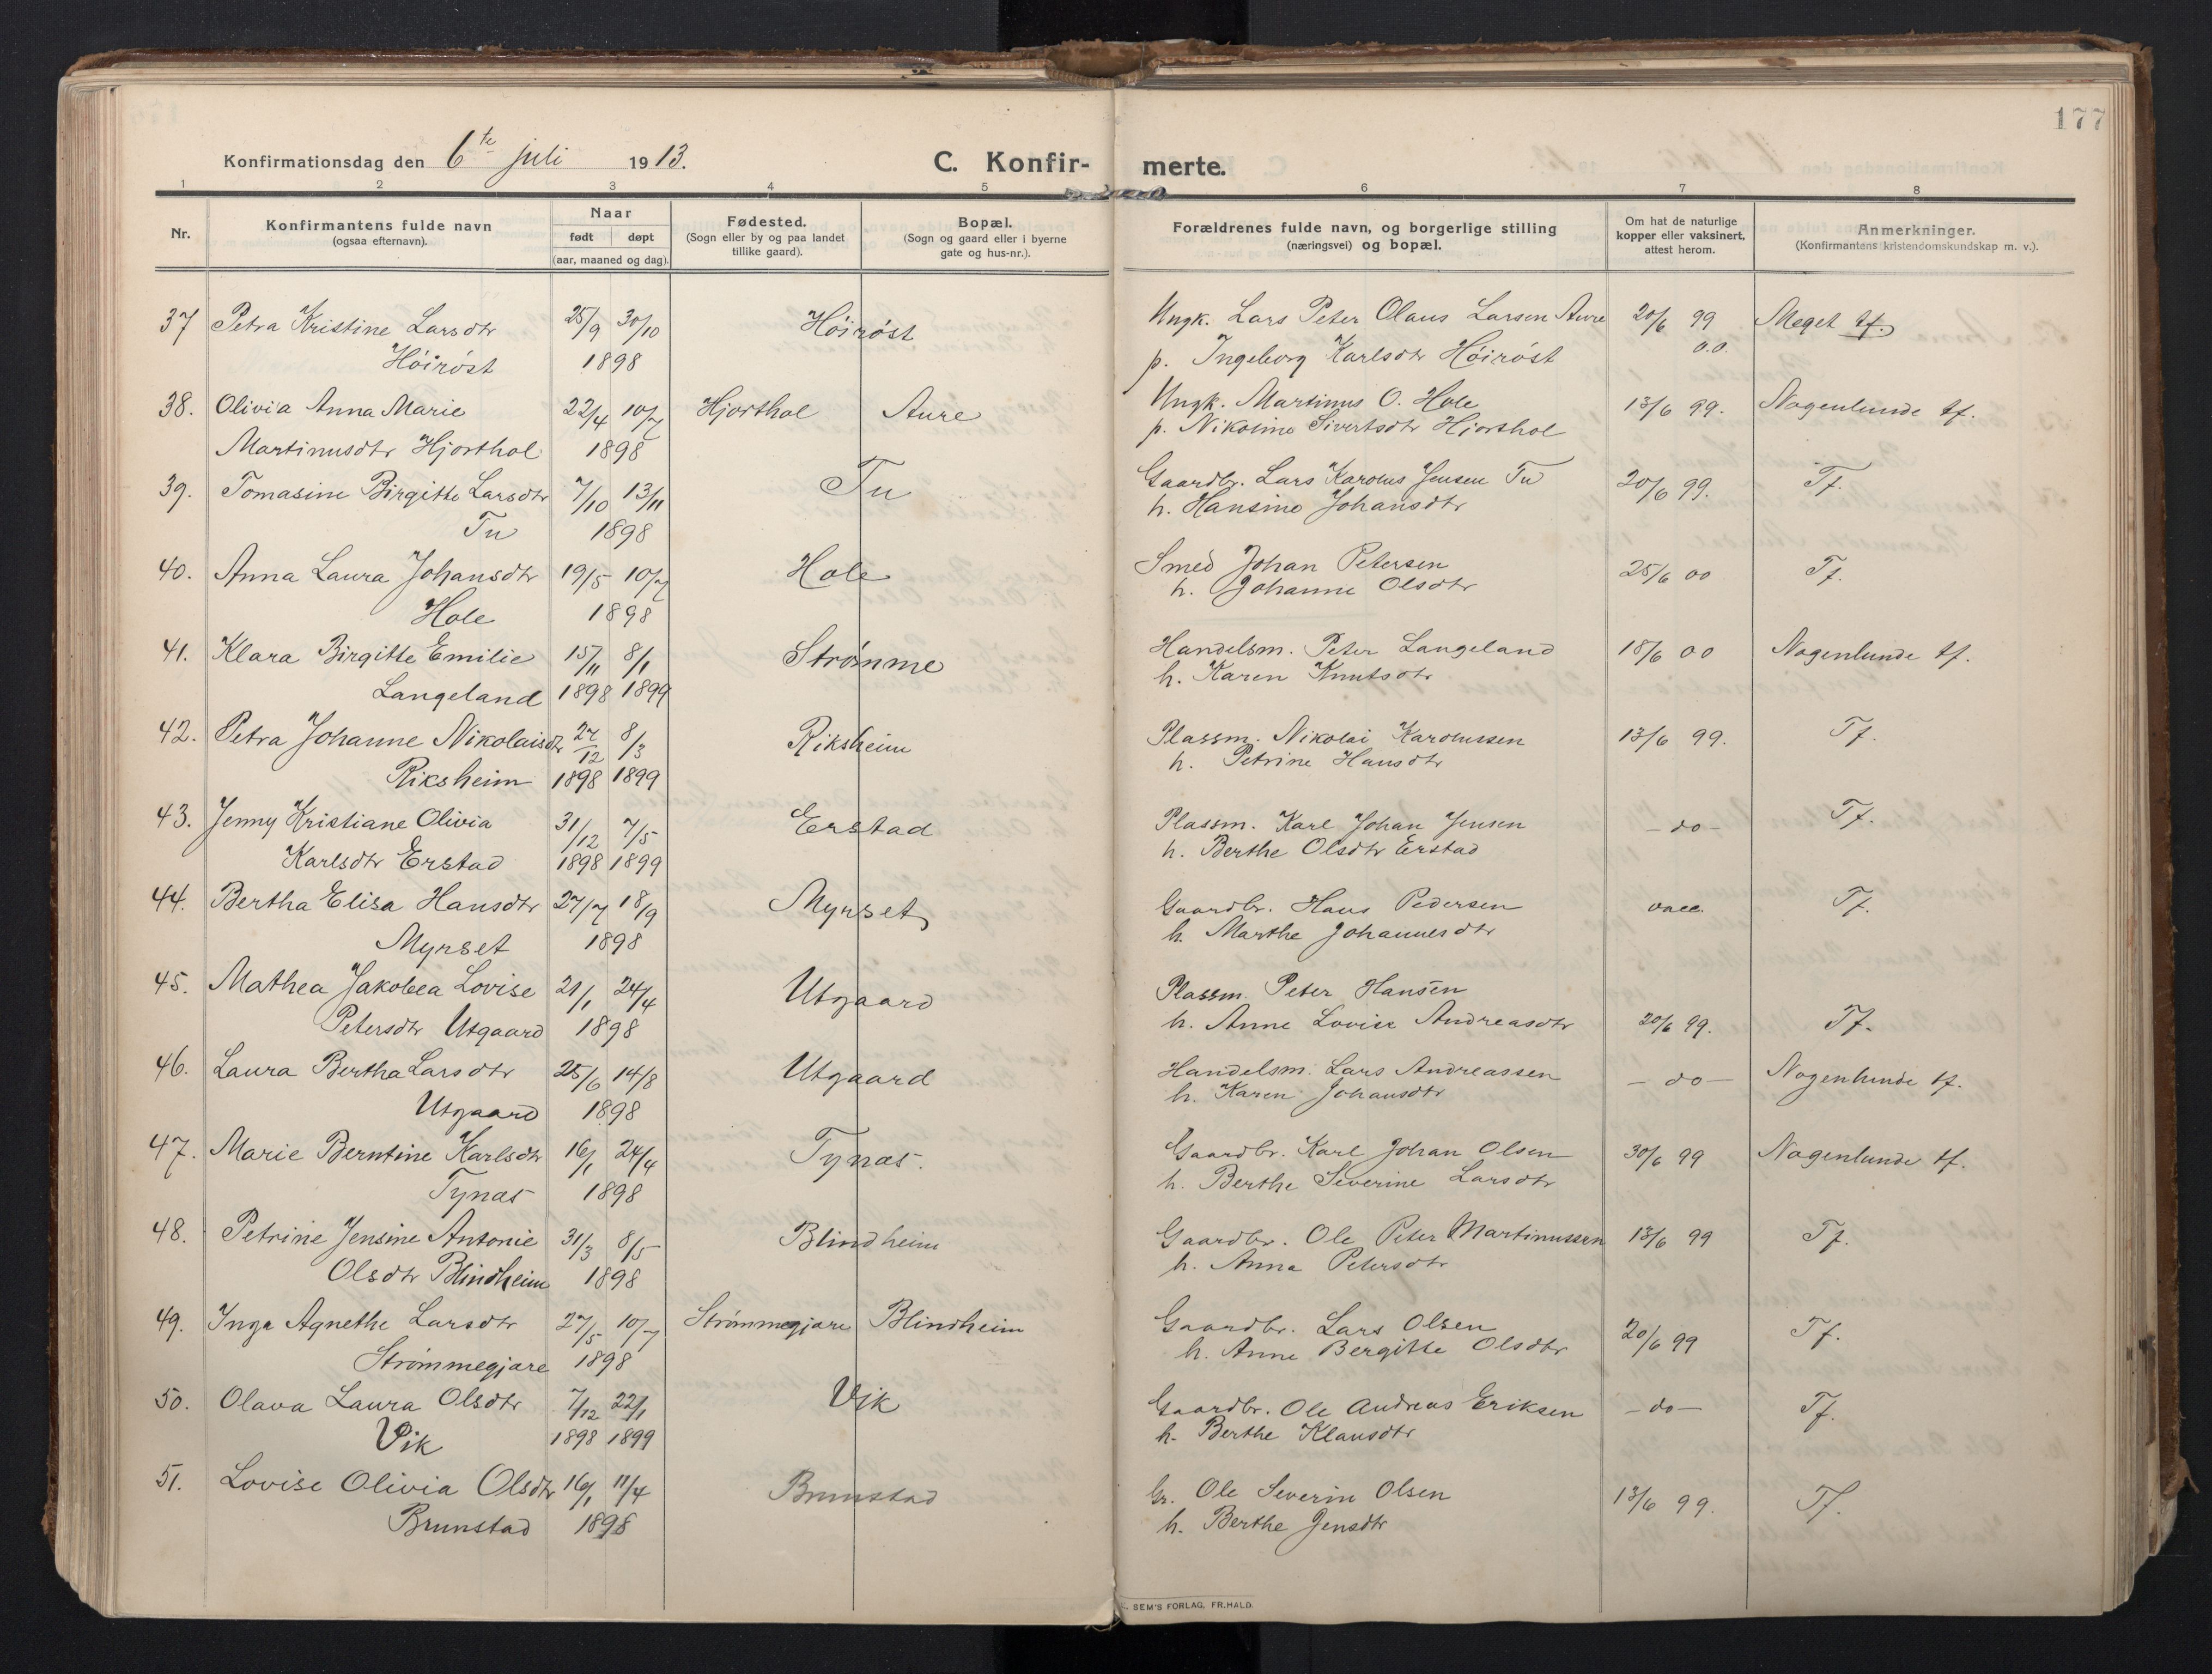 177
Konfirmationsdag den 6te juli 1913.
C. Konfir- merte.
1 2 3 4 5 6 7 8
Nr.
Konfirmantens fulde navn
(ogsaa efternavn).
Naar
født døpt
(aar, maaned og dag).
Fødested.
(Sogn eller by og paa landet
tillike gaard).
Bopæl.
(Sogn og gaard eller i byerne
gate og hus-nr.).
Forældrenes fulde navn, og borgerlige stilling
(næringsvei) og bopæl.
Om hat de naturlige
kopper eller vaksinert,
attest herom.
Anmerkninger.
(Konfirmantens kristendomskundskap m. v.).
37 Petra Kristine Larsdtr 25/9 30/10 Höiröst Ungk. Lars Peter Olaus Larsen Aure 20/6 99 Meget tf.
Höiröst 1898 p. Ingeborg Karlsdtr Höiröst o.o.
38. Olivia Anna Marie 22/4 10/7 Hjorthol Aure Ungk. Martinus O. Hole 13/6 99. Nogenlunde tf.
Martinusdtr Hjorthol 1898 p. Nikoline Sivertsdtr Hjorthol
39. Tomasine Birgitte Larsdtr 7/10 13/11 Tu Gaardbr. Lars Karolus Jensen Tu 20/6 99. Tf.
Tu 1898 h. Hansine Johansdtr
40. Anna Laura Johansdtr 19/5 10/7 Hole Smed Johan Petersen 25/6 00 Tf.
Hole 1898 h. Johanne Olsdtr
41. Klara Birgitte Emilie 15/11 8/1 Strømme Handelsm. Peter Langeland 18/6 00 Nogenlunde tf.
Langeland 1898 1899 h. Karen Knutsdtr
42. Petra Johanne Nikolaisdtr 27/12 8/3 Riksheim Plassm. Nikolai Karolussen 13/6 99. Tf.
Riksheim 1898 1899 h. Petrine Hansdtr
43. Jenny Kristiane Olivia 31/12 7/5 Erstad Plassm. Karl Johan Jensen - do - Tf.
Karlsdtr Erstad 1898 1899 h. Berthe Olsdtr Erstad
44. Bertha Elisa Hansdtr 27/7 18/9 Myrset Gaardbr. Hans Pedersen vacc. Tf.
Myrset 1898 h. Marthe Johannesdtr
45. Mathea Jakobea Lovise 21/1 24/4 Utgaard Plassm. Peter Hansen
Petersdtr Utgaard 1898 h. Anne Lovise Andreasdtr 20/6 99. Tf.
46. Laura Bertha Larsdtr 25/6 14/8 Utgaard Handelsm. Lars Andreassen - do - Nogenlunde tf.
Utgaard 1898 h. Karen Johansdtr
47. Marie Berntine Karlsdtr 16/1 24/4 Tynæs. Gaardbr. Karl Johan Olsen 30/6 99 Nogenlunde tf.
Tynæs 1898 h. Berthe Severine Larsdtr
48. Petrine Jensine Antonie 31/3 8/5 Blindheim Gaardbr. Ole Peter Martinussen 13/6 99 Tf.
Olsdtr Blindheim 1898 h. Anna Petersdtr
49. Inga Agnethe Larsdtr 27/5 10/7 Strømmegjære Blindheim Gaardbr. Lars Olsen 20/6 99 Tf.
Strømmegjære 1898 h. Anne Bergitte Olsdtr
50. Olava Laura Olsdtr 7/12 22/1 Vik Gaardbr. Ole Andreas Eriksen - do - Tf.
Vik 1898 1899 h. Berthe Klausdtr
51. Lovise Olivia Olsdtr 16/1 11/4 Brunstad Gr. Ole Severin Olsen 13/6 99. Tf.
Brunstad 1898 h. Berthe Jensdtr
SEM'S FORLAG, FR.HALD.